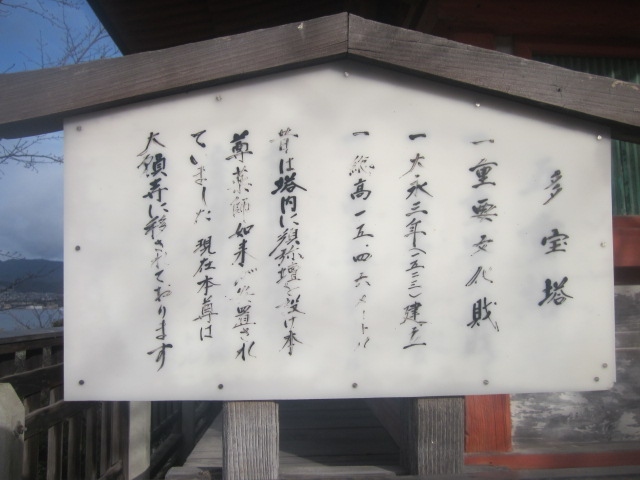 多宝塔
一重要文化財
一大永三年（一五二三）建立
一総高一五．四六メートル
昔は塔内に須弥壇を設け本
尊薬師如来が安置され
ていました 現在本尊は
大願寺に移されております